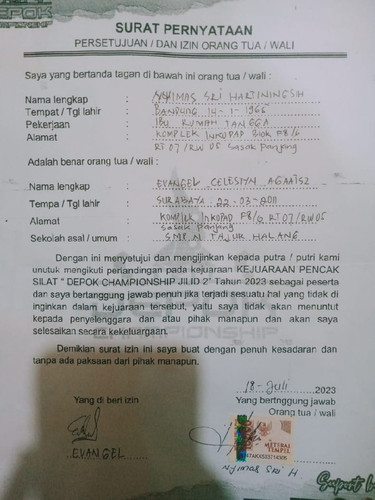 DEPOK
SURAT PERNYATAAN
PERSETUJUAN / DAN IZIN ORANG TUA / WALI
Saya yang bertanda tagan di bawah ini orang tua / wali :
Nama lengkap : SRI HARTININGSIH
Tempat / Tgl lahir : BANDUNG 14-1-1966
Pekerjaan : IBU RUMAH TANGGA
Alamat : KOMPLEK INKOPAD Blok F8/6
RT 07 / RW 05 Sasak Panjang
Adalah benar orang tua / wali :
Nama lengkap : EVANGEL CELESTYN
Tempa / Tgl lahir : SURABAYA 22-03-2011
Alamat : KOMPLEK INKOPAD F8/6 RT 07/RW 05
Sasak Panjang
Sekolah asal / umum : SMP N TAJUR HALANG
Dengan ini menyetujui dan mengijinkan kepada putra / putri kami
unutuk mengikuti perlandingan pada kejuaraan KEJUARAAN PENCAK
SILAT " DEPOK CHAMPIONSHIP JILID 2" Tahun 2023 sebagai peserta
dan saya bertanggung jawab penuh jika terjadi sesuatu hal yang tidak di
inginkan dalam kejuaraan tersebut, yaitu saya tidak akan menuntut
kepada penyelenggara dan atau pihak manapun dan akan saya
selesaikan secara kekeluargaan.
Demikian surat izin ini saya buat dengan penuh kesadaran dan
tanpa ada paksaan dari pihak manapun.
18-Juli 2023
Yang di beri izin
Yang bertnggung jawab
Orang tua / wali
METERAI
TEMPEL
EVANGEL